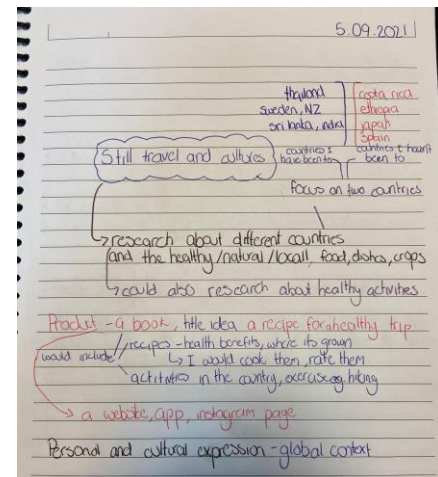 5.09.2021
thailand
Sweden, NZ
sri lanka, india
costa rica
ethiopia
japan
spain
Still travel and cultures
countries I
have been to
countries I havn't
been to
focus on two countries
research about different countries
and the healthy/natural/locall, food, dishes, crops
could also research about healthy activities
Product - a book, title idea a recipe for a healthy trip
would include
recipes - health benefits, where its grown
I would cook them, rate them
activities in the country, exercise eg. hiking
a website, app, instagram page
Personal and cultural expression - global context